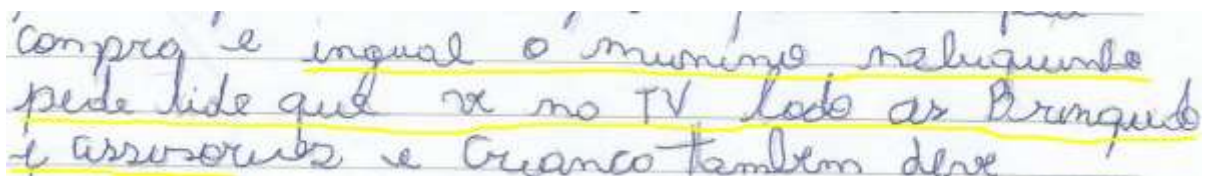 compra e ingual o muninino naluquinho
pede tide que ve no TV todo as Brinquedo
e assesorios e Crianco tambem deve